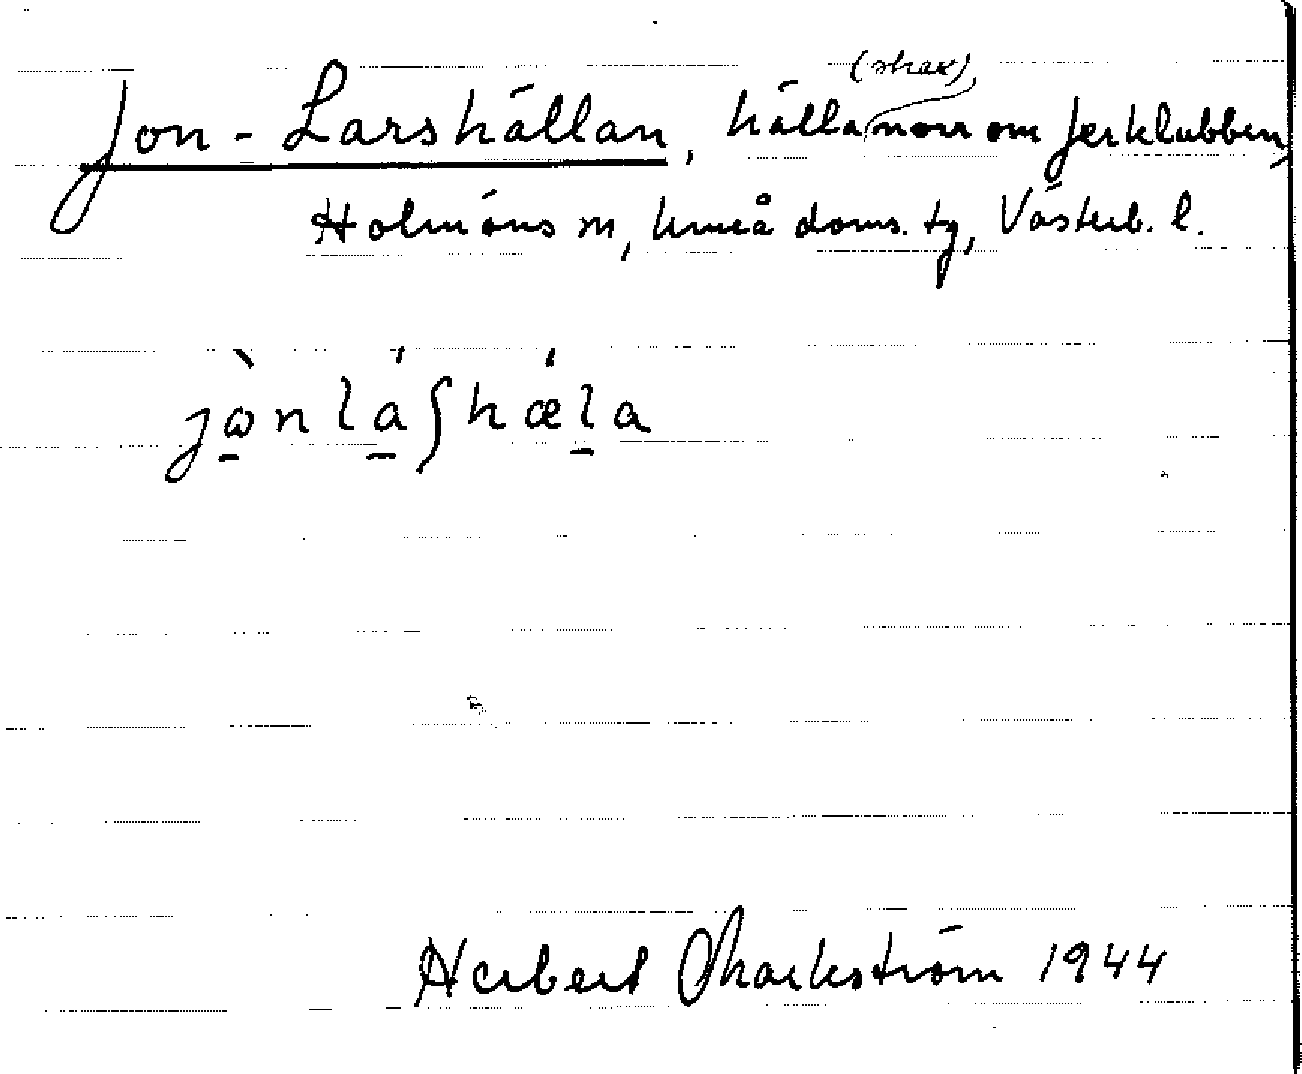 Jon-Larshällan, hälla (strax) norr om Jerklubben,
Holmöns sn, Umeå doms. tg, Västerb. l.
jɷ̀nláʃhǽla
Herbert Markström 1944